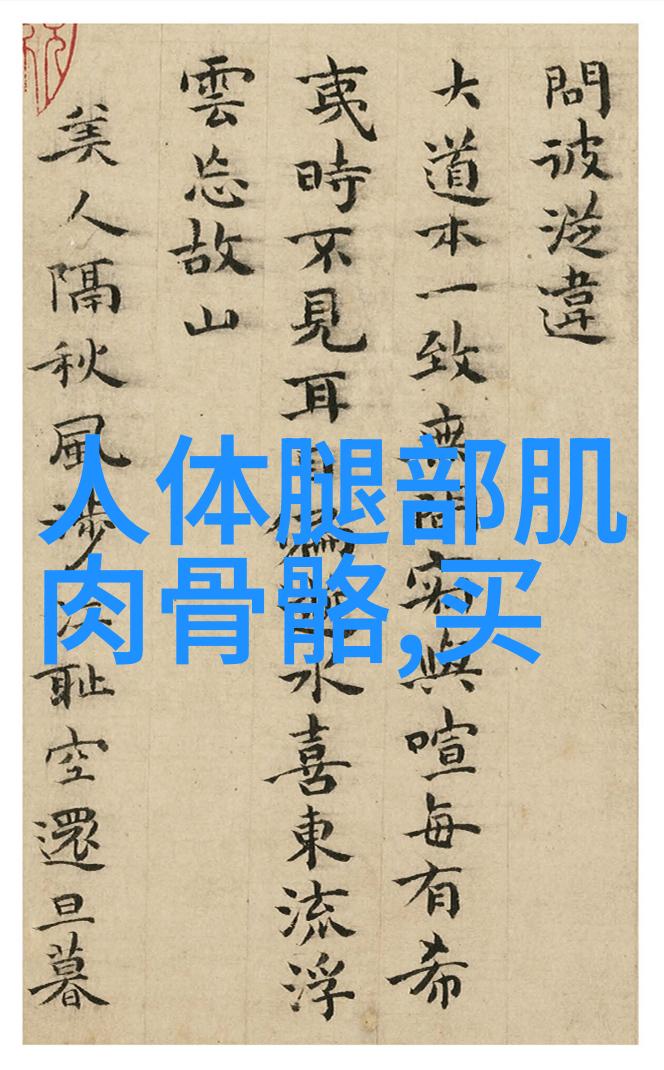 問彼從違
大道本一致無寂與喧每有希
夷時不見耳水喜東流浮
雲忘故山
美人隔秋風涉恥空還旦暮
人体腿部肌
肉骨骼,买